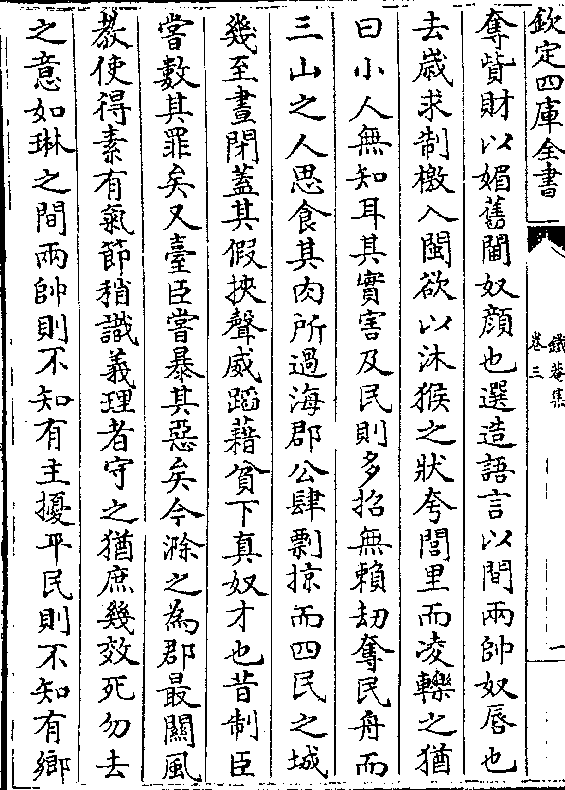 欽定四庫全書
鐵菴集
卷三
一
奪貲財以媚舊閫奴顔也選造語言以間兩帥奴唇也
去歳求制檄入閩欲以沐猴之狀夸閭里而凌轢之猶
曰小人無知耳其實害及民則多招無賴刼奪民舟而
三山之人思食其肉所過海郡公肆剽掠而四民之城
幾至晝閉蓋其假挾聲威蹈藉貧下真奴才也昔制臣
嘗數其罪矣又臺臣嘗暴其惡矣今滁之為郡最關風
教使得素有氣節稍識義理者守之猶庶幾效死勿去
之意如琳之間兩帥則不知有主擾平民則不知有鄉